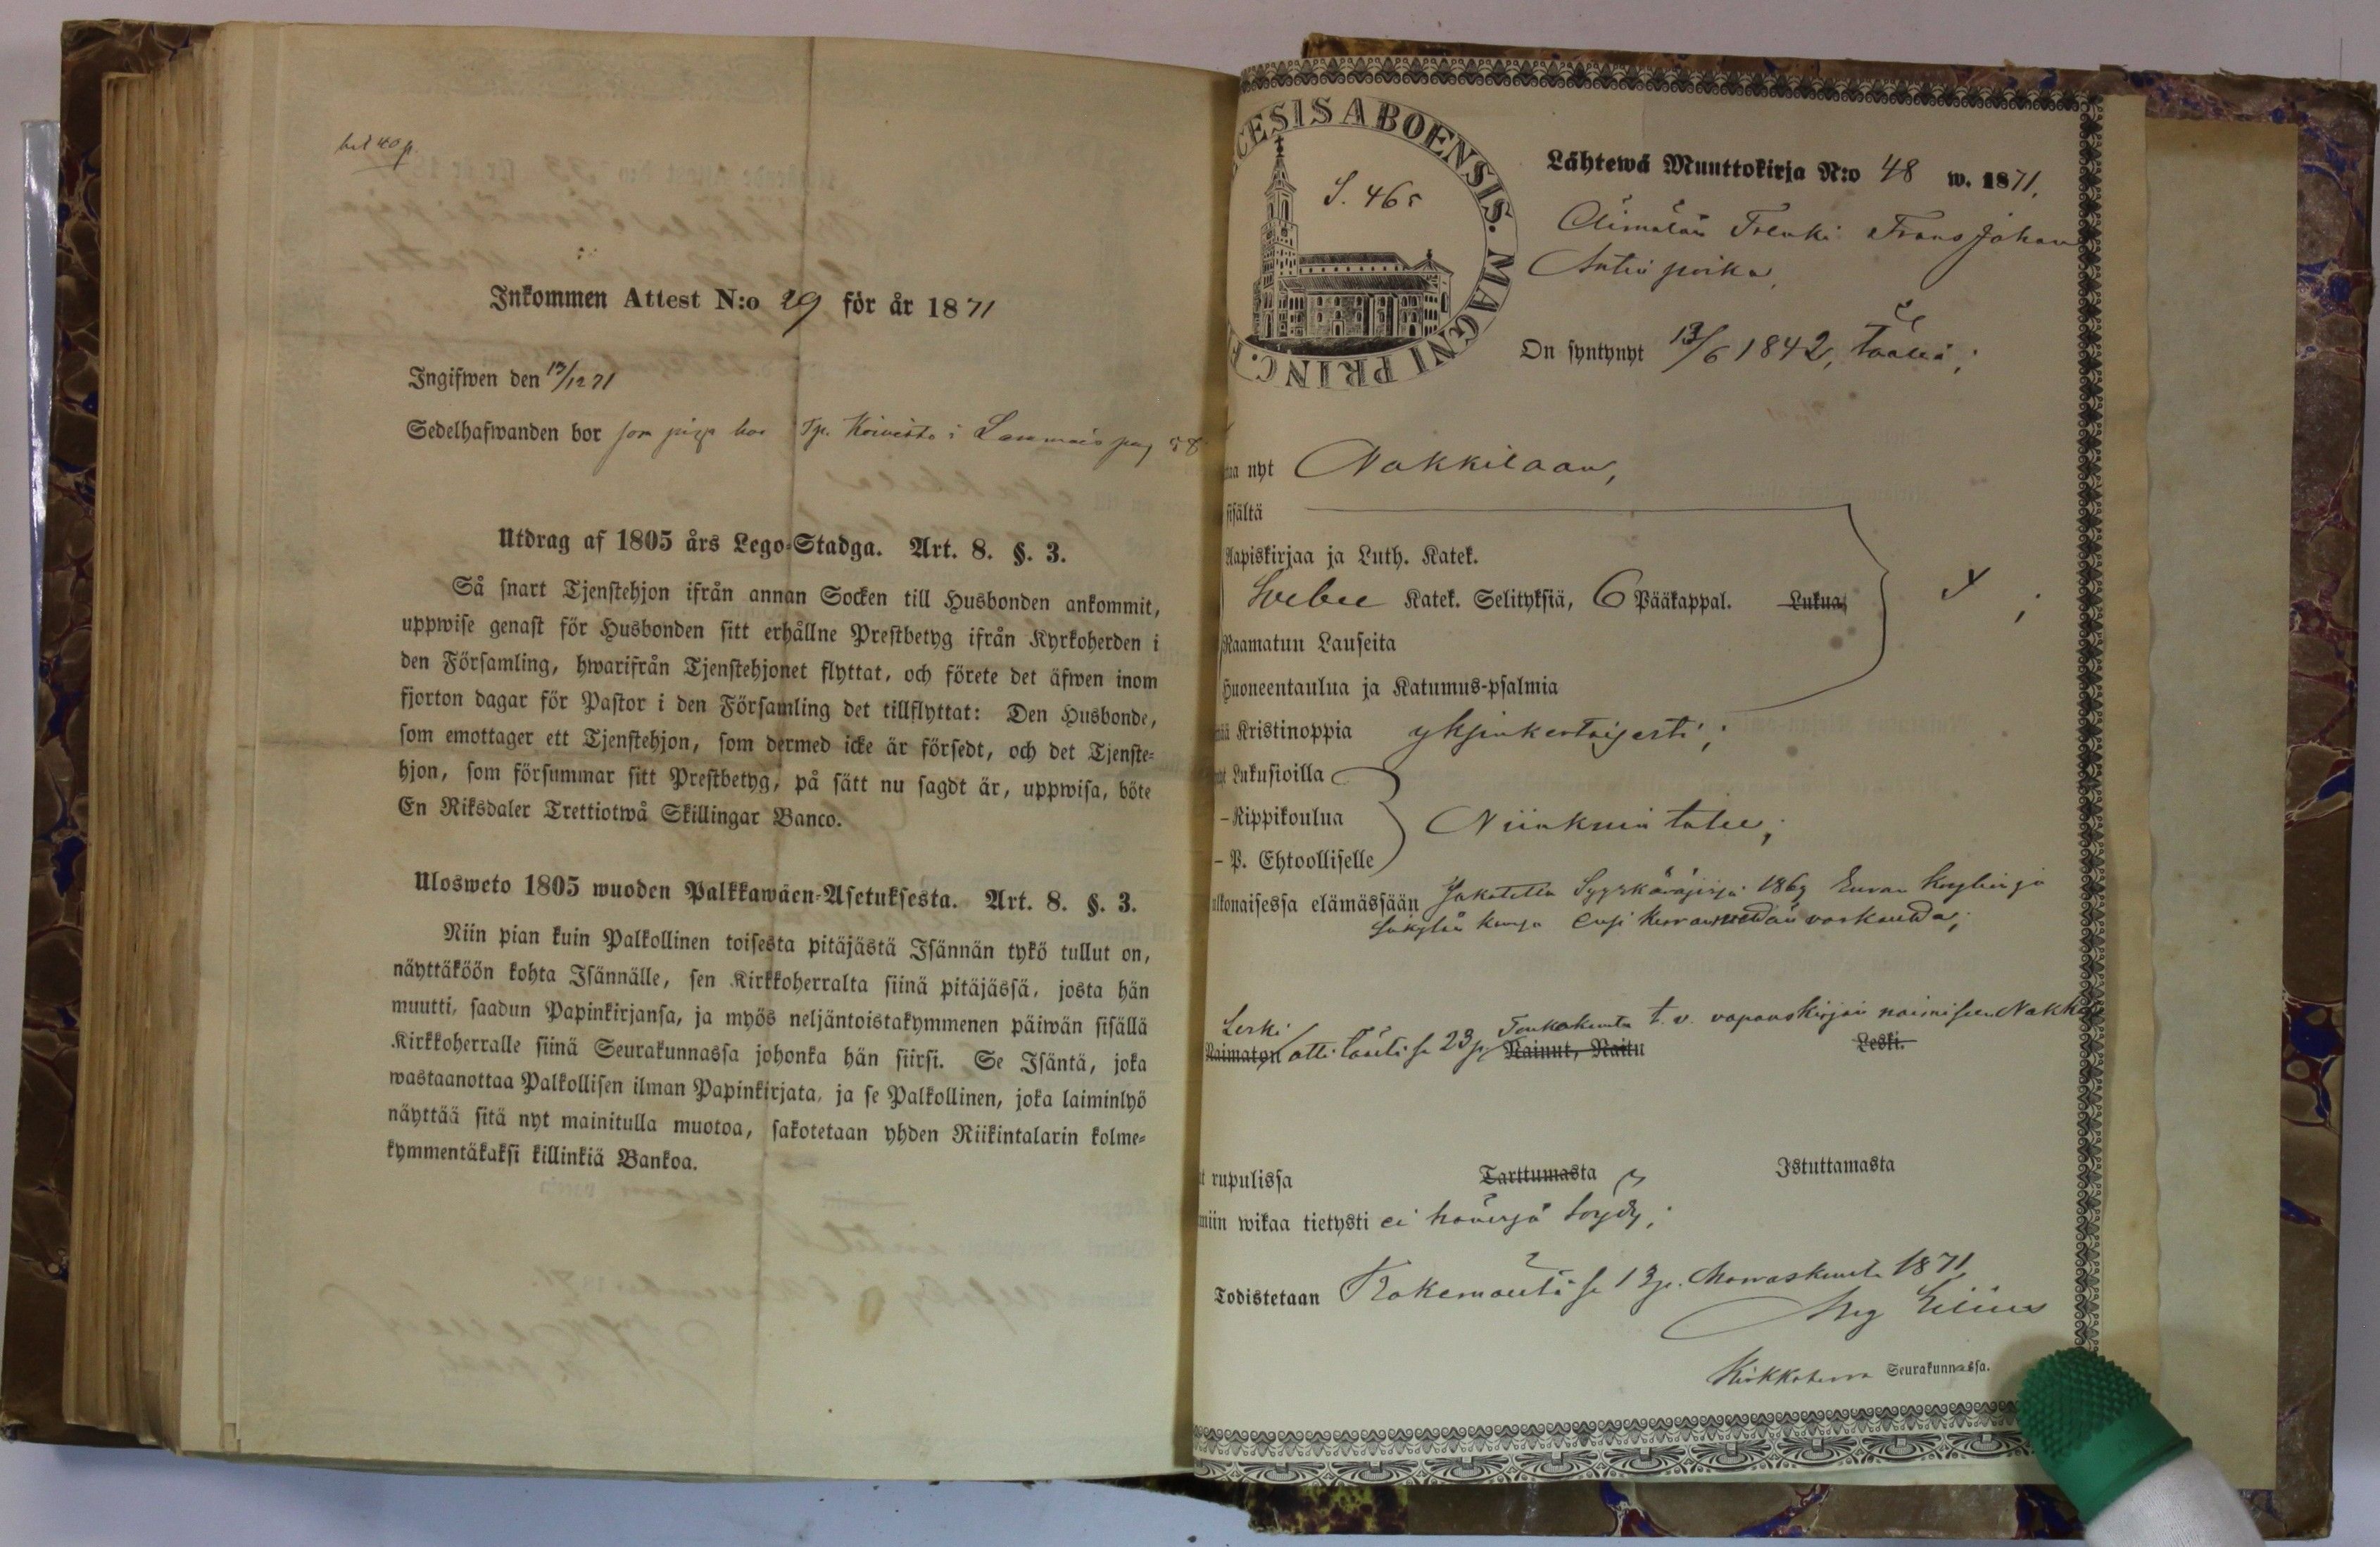 bet 40 p.
Inkommen Attest N:o 29 för år 1871
Ingifwen den 13/12 71
Sedelhafwanden bor som piga hos Tp. Koivisto i Lammais pag 58
Utdrag af 1805 års Lego-Stadga. Art. 8. §. 3.
Så snart Tjenstehjon ifrån annan Socken till Husbonden ankommit,
uppwise genast för Husbonden sitt erhållne Prestbetyg ifrån Kyrkoherden i
den Församling, hwarifrån Tjenstehjonet flyttat, och förete det äfwen inom
fjorton dagar för Pastor i den Församling det tillflyttat: Den Husbonde,
som emottager ett Tjenstehjon, som dermed icke är försedt, och det Tjenste-
hjon, som försummar sitt Prestbetyg, på sätt nu sagdt är, uppwisa, böte
En Riksdaler Trettiotwå Skillingar Banco.
Ulosweto 1805 wuoden Palkkawäen-Asetuksesta. Art. 8. §. 3.
Niin pian kuin Palkollinen toisesta pitäjästä Isännän tykö tullut on,
näyttäköön kohta Isännälle, sen Kirkkoherralta siinä pitäjässä, josta hän
muutti, saadun Papinkirjansa, ja myös neljäntoistakymmenen päiwän sisällä
Kirkkoherralle siinä Seurakunnassa johonka hän siirsi. Se Isäntä, joka
wastaanottaa Palkollisen ilman Papinkirjata, ja se Palkollinen, joka laiminlyö
näyttää sitä nyt mainitulla muotoa, sakotetaan yhden Riikintalarin kolme-
kymmentäkaksi killinkiä Bankoa.
CESIS ABOENSIS. MAGNI PRINC. F
S. 465
Lähtewä Muuttokirja N:o 48 w. 1871,
Trenki Frans Johan
Antin poika,
On syntynyt 13/6 1842, täällä;
taa nyt Nakkilaan,
sisältä
Aapiskirjaa ja Luth. Katek.
Svebee Katek. Selityksiä, 6 Pääkappal. Lukua
Raamatun Lauseita
Huoneentaulua ja Katumus-psalmia
Kristinoppia yksinkertaisesti;
Lukusioilla
– Rippikoulua Niinkuin tulee;
– P. Ehtoolliselle
ulkonaisessa elämässään Sakotettu Syyskäräjissä 1869 Euran Köyliön ja
Säkylän kansa ensi kerran
Leski
Naimaton otti täältä se 23 p. Toukokuuta t. v. vapauskirjan naimiseen Nakk
Nainut, Naitu Leski.
rupulissa Tarttumasta Istuttamasta
niin wikaa tietysti ei hänessä löydy;
Todistetaan Kokemäeltä se 13 p. Marraskuuta 1871
Kirkkoherra Seurakunnassa.